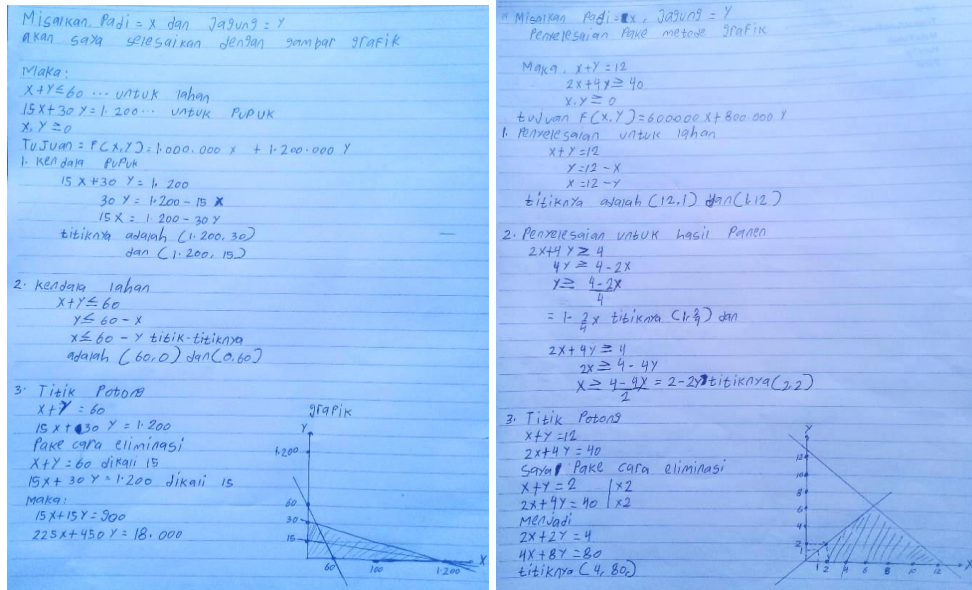 Misalkan Padi = x dan Jagung = Y
akan saya selesaikan dengan gambar grafik
Maka:
x+Y≤60 ... untuk lahan
15x+30 Y=1.200... untuk PUPUK
x, Y ≥0
Tujuan = F(x,Y)=1.000.000 x + 1.200.000 Y
1. Kendala PUPUK
15 x+30 Y=1.200
30 Y=1.200-15 x
15x=1.200-30Y
titiknya adalah (1.200, 30)
dan (1.200, 15)
2. Kendala lahan
x+Y≤60
Y≤60-x
x≤60-Y titik-titiknya
adalah (60,0) dan(0,60)
3. Titik Potong
x+Y=60
15x+30 Y=1.200
Pake cara eliminasi
x+Y=60 dikali 15
15x+30 Y=1.200 dikali 15
Maka:
15x+15Y=900
225x+450Y=18.000
grafik
Y
1.200
60
30
15
60 100 1.200
X
Misalkan Padi=x, Jagung=Y
Penyelesaian Pake metode grafik
Maka, x+Y=12
2x+4Y≥40
x,Y≥0
tujuan F(x,Y)=600000 x+800.000 Y
1. Penyelesaian untuk lahan
x+Y=12
Y=12-x
x=12-Y
titiknya adalah (12,1) dan(1,12)
2. Penyelesaian untuk hasil Panen
2x+4Y≥4
4Y≥4-2x
Y≥ 4-2x
4
=1-2/4x titiknya (1,2/4) dan
2x+4Y≥4
2x≥4-4Y
x≥ 4-4Y/2 =2-2Y titiknya(2,2)
3. Titik Potong
x+Y=12
2x+4Y=40
saya Pake cara eliminasi
x+Y=2 |x2
2x+4Y=40 |x2
Menjadi
2x+2Y=4
4x+8Y=80
titiknya (4, 80,)
Y
12
10
8
6
4
2
1
1 2 4 6 8 10 12
X